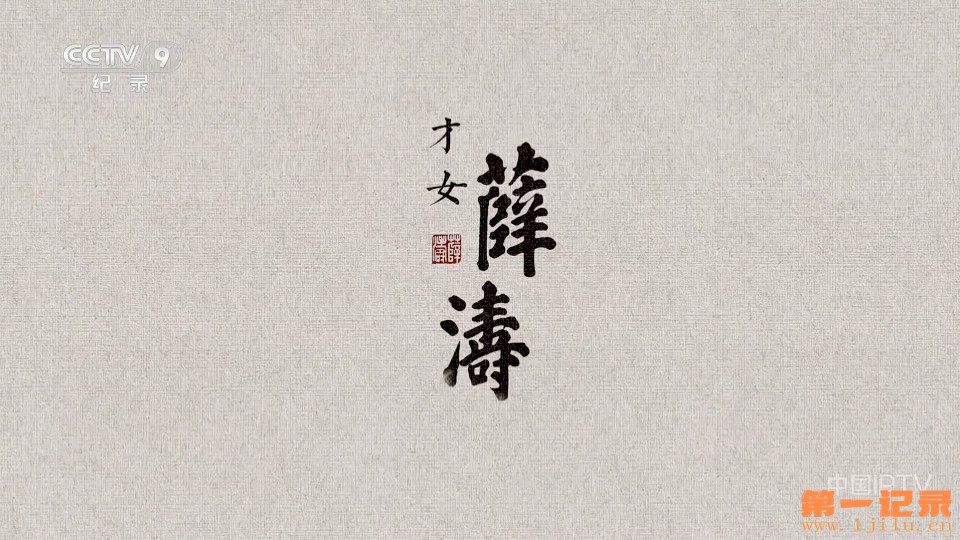 CCTV 9
纪录
薛濤
才女
薛濤
中国IPTV
第一记录
www.1jilu.cn